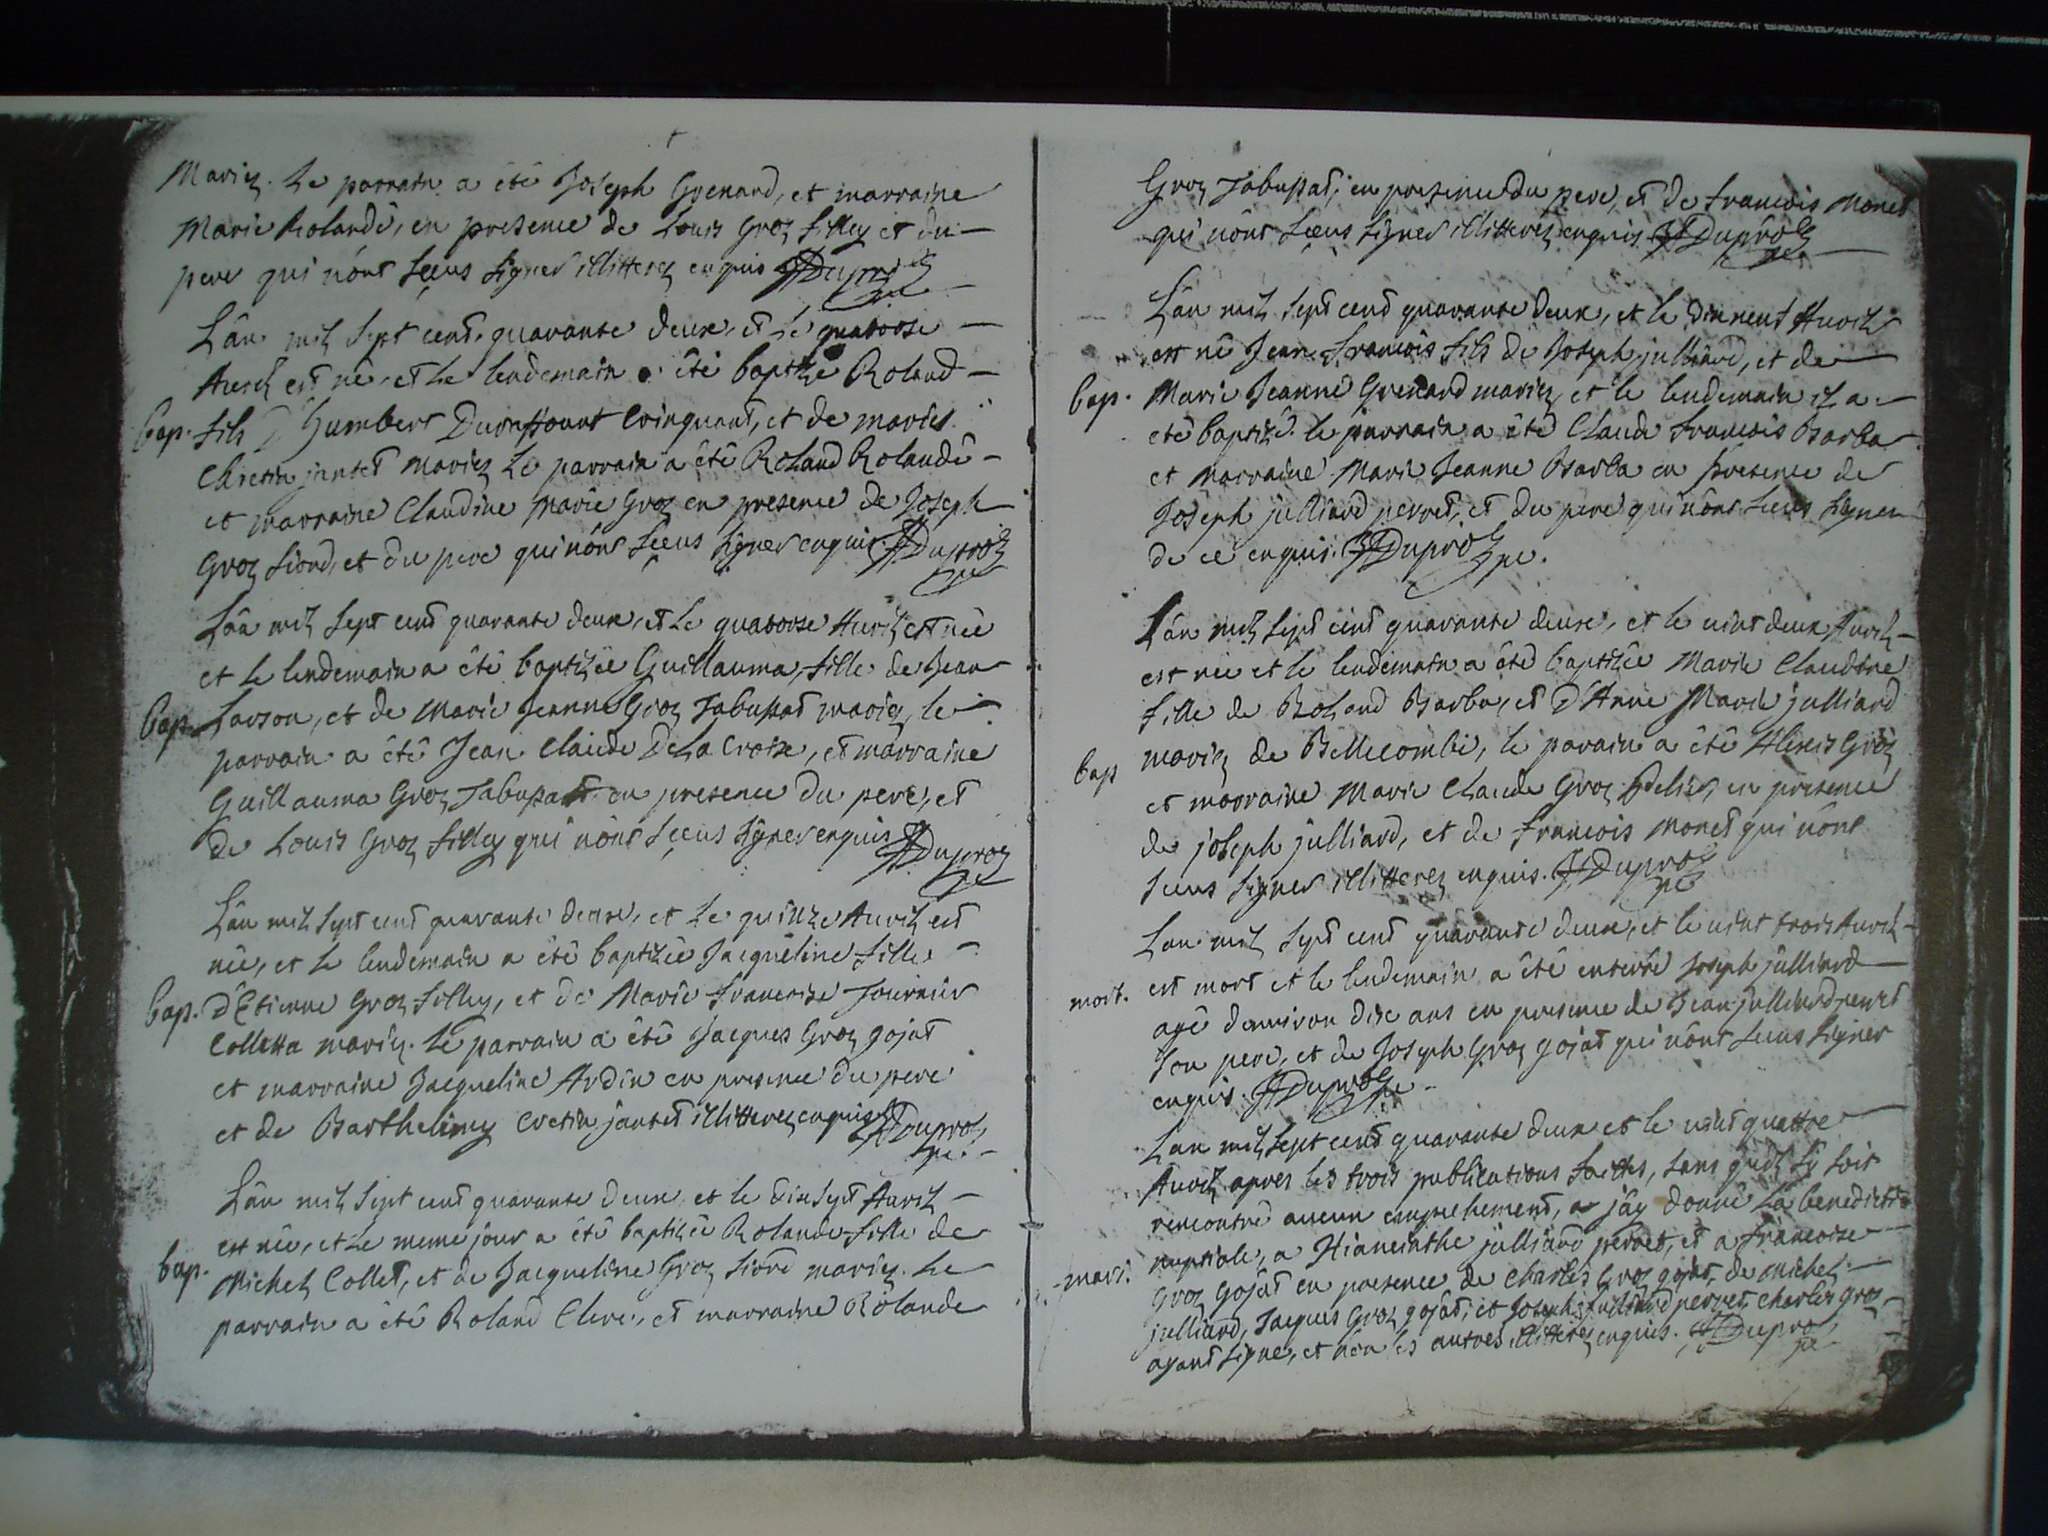 Mariez. Le parrain a été Joseph Grenard, et marraine
Marie Rolandé, en presence de Louis Groz filley et du
pere qui n'ônt sçeus signer illitterez enquis JfDuproz
pe
L'ân mil sept cent quarante deux, et le quatorse
Auril est né, et le lendemain a été baptizé Roland
bap. fils D'Humbert Duraffourt Crinquant, et de marie
Chretin jantet mariez Le parrain a été Roland Rolandé
et marraine Claudine Marie Groz en presence de Joseph
Groz siord, et du pere qui n'ônt sçeus signer enquis JfDuproz
pe
L'ân mil sept cent quarante deux, et Le quatorse Auril est née
et le lendemain a été baptizée Guillauma, fille de Jean
bap. Lavson, et de Marie Jeanne Groz Tabussat mariez, le
parrain a été Jean Claude De La Croix, et marraine
Guillauma Groz Tabussat en presence du pere, et
de Louis Groz filley qui n'ônt sçeus signer enquis JfDuproz
pe
L'ân mil sept cent quarante deux, et Le quinze Auril est
née, et le lendemain a été baptizée Jacqueline fille
bap. d'Etienne Groz filley, et de Marie françoise Tournier
Colletta mariez. Le parrain a été Jacques Groz gojat
et marraine Jacqueline Ardin en presence du pere
et de Barthelemy Cretin jantet illitterez enquis JfDuproz
pe.
L'ân mil sept cent quarante deux et le dixsept Auril
est née, et Le meme jour a été baptizée Rolande fille de
bap. Michel Collet, et de Jacqueline Groz siord mariez. Le
parrain a été Roland Clerc, et marraine Rolande
Groz Tabussat, en presence du pere, et de francois Monet
qui n'ônt sceus signer illitterez enquis JfDuproz
pe
L'ân mil sept cent quarante deux, et le dixneuf Auril
est né Jean francois fils de Joseph julliard, et de
bap. Marie Jeanne Grenard mariez, et le lendemain il a
eté baptizé. le parrain a été Claude francois Barba
et marraine Marie Jeanne Barba en presence de
Joseph julliard perret, et du pere qui n'ônt sceus signer
de ce enquis. JfDuproz pe.
L'ân mil sept cent quarante deux, et le vint deux Auril
est née et le lendemain a été baptizée Marie Claudine
fille de Roland Barba, et D'Anne Marie julliard
bap mariez de Bellecombe, le parain a été Alexis Groz
et marraine Marie Claude Groz Pelisse, en presence
de joseph julliard, et de francois monet qui n'ônt
sceus signer illitterez enquis. JfDuproz
pe
L'an mil sept cent quarante deux, et le vint trois Auril
mort. est mort et le lendemain a été enterré Joseph julliard
agé d'enuiron dix ans en presence de Jean julliard perret
son pere, et de Joseph Groz gojat qui n'ônt sceus signer
enquis. JfDuproz pe
L'an mil sept cent quarante deux et le vint quattre
Auril apres les trois publications faittes, sans qu'il s'y soit
rencontré aucun empechement, j'ây donné la benedicti
mari. nuptiale, a Hiancinthe julliard perret, et a francoise
Groz gojat en presence de Charles Groz gojat, de Michel
julliard, Jacques Groz gojat, et Joseph julliard perret, Charles Groz
ayant signé, et non les autres illitterez enquis. JfDuproz
pe